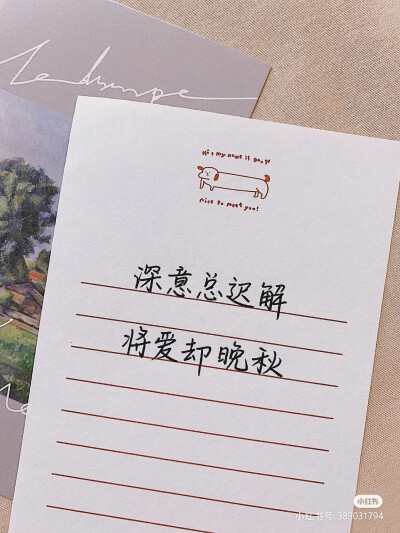 Hi ! my name is Dooge
nice to meet you!
深意总迟解
将爱却晚秋
小红书
小红书号:389031794